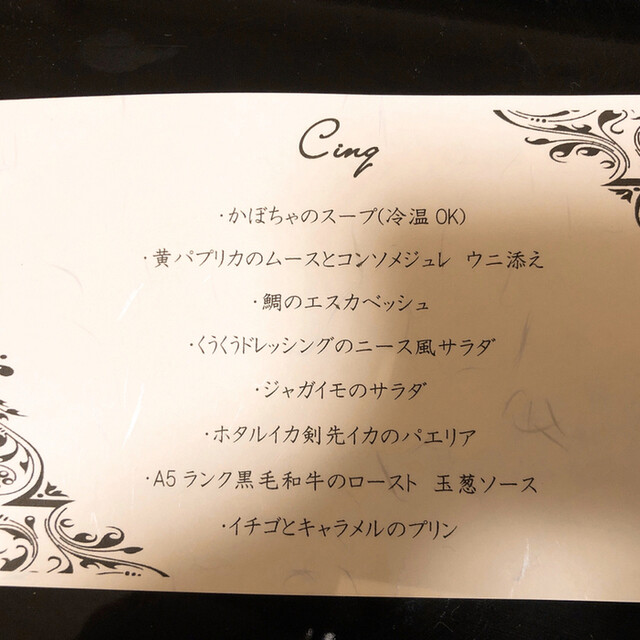 Cinq
・かぼちゃのスープ(冷温OK)
・黄パプリカのムースとコンソメジュレ ウニ添え
・鯛のエスカベッシュ
・くうくうドレッシングのニース風サラダ
・ジャガイモのサラダ
・ホタルイカ剣先イカのパエリア
・A5ランク黒毛和牛のロースト 玉葱ソース
・イチゴとキャラメルのプリン